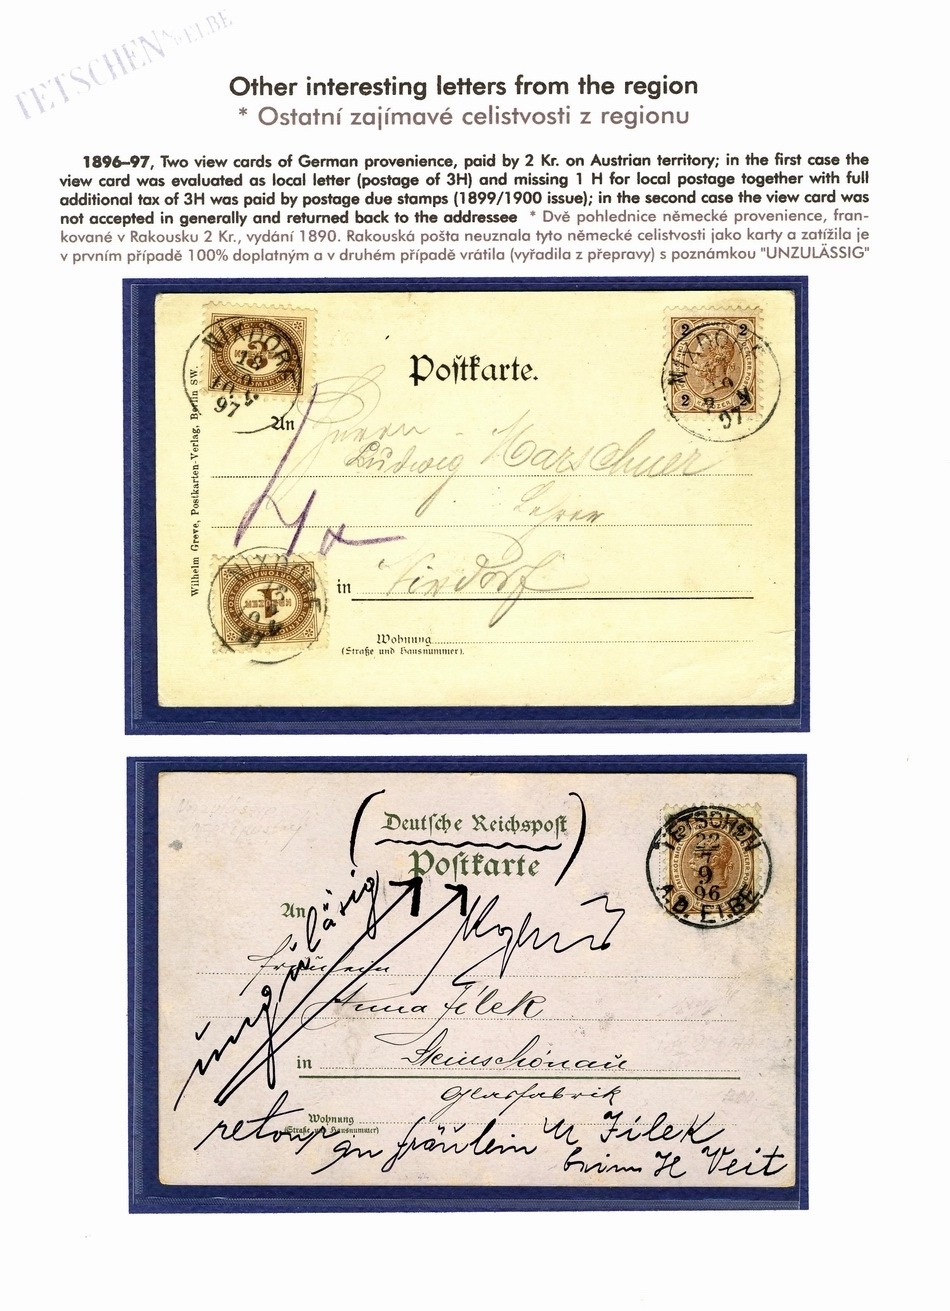 TETSCHEN ELBE
Other interesting letters from the region
* Ostatní zajímavé celistvosti z regionu
1896–97, Two view cards of German provenience, paid by 2 Kr. on Austrian territory; in the first case the
view card was evaluated as local letter (postage of 3H) and missing 1 H for local postage together with full
additional tax of 3H was paid by postage due stamps (1899/1900 issue); in the second case the view card was
not accepted in generally and returned back to the addressee * Dvě pohlednice německé provenience, fran-
kované v Rakousku 2 Kr., vydání 1890. Rakouská pošta neuznala tyto německé celistvosti jako karty a zatížila je
v prvním případě 100% doplatným a v druhém případě vrátila (vyřadila z přepravy) s poznámkou "UNZULÄSSIG"
NIXDORF
97
2 2
2
NIXDORF
97
Postkarte.
Wilhelm Greve, Postkarten-Verlag, Berlin SW.
An
Herrn
Ludwig Marschner
Lehrer
in Nixdorf
NIXDORF
1
97
Wohnung
(Straße und Hausnummer).
(Deutsche Reichspost)
Postkarte
TETSCHEN
22
7
9
96
A.D. ELBE
An
Fräulein
Anna Jilek
in Steinschönau
Glasfabrik
Wohnung
(Straße und Hausnummer)
retour an Fräulein A Jilek
beim H Veit